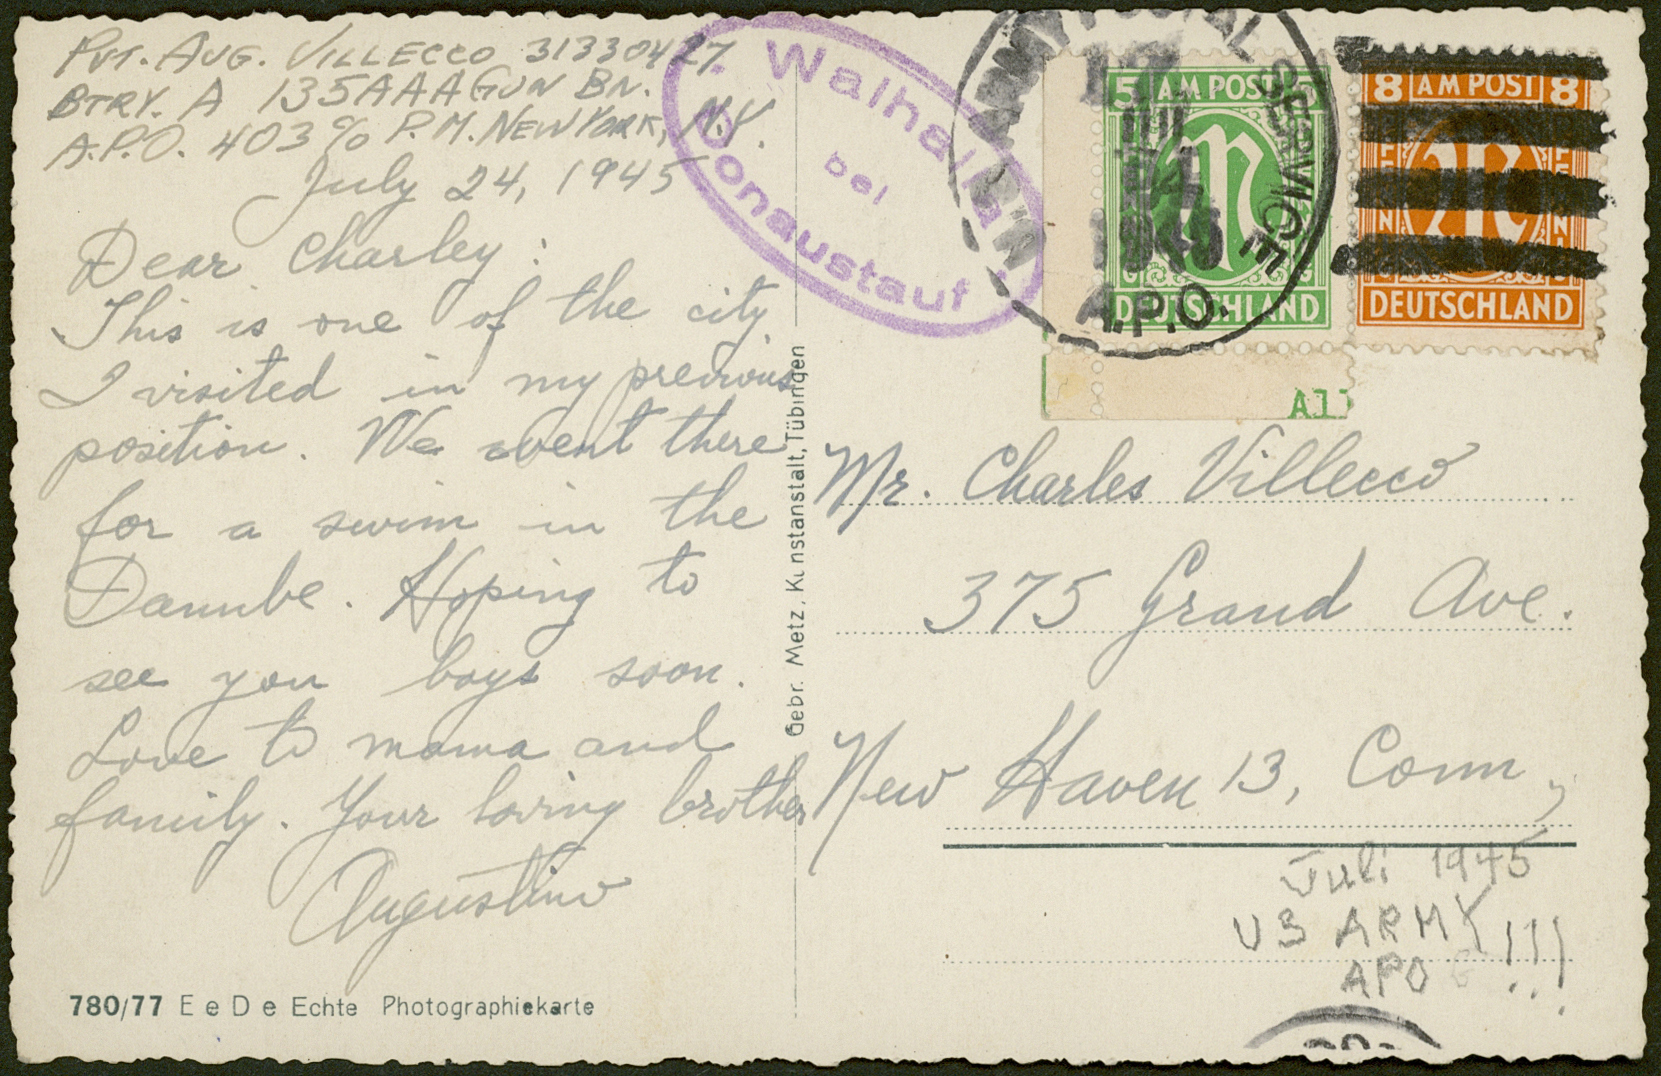 Pvt. Aug. Villecco 31330427
Btry. A 135 AAA Gun Bn.
A.P.O. 403 c/o P.M. New York, N.Y.
July 24, 1945
Dear Charley:
This is one of the city
I visited in my previous
position. We went there
for a swim in the
Danube. Hoping to
see you boys soon.
Love to mama and
family. Your loving brother
Augustino
780/77 EeDe Echte Photographiekarte
Gebr. Metz, Kunstanstalt, Tübingen
Walhalla
bei
Donaustauf
ARMY POSTAL SERVICE
JUL
24
1945
A.P.O.
5 AM POST 5
DEUTSCHLAND
8 AM POST 8
DEUTSCHLAND
Mr. Charles Villecco
375 Grand Ave.
New Haven 13, Conn,
Juli 1945
US ARMY
APO !!!